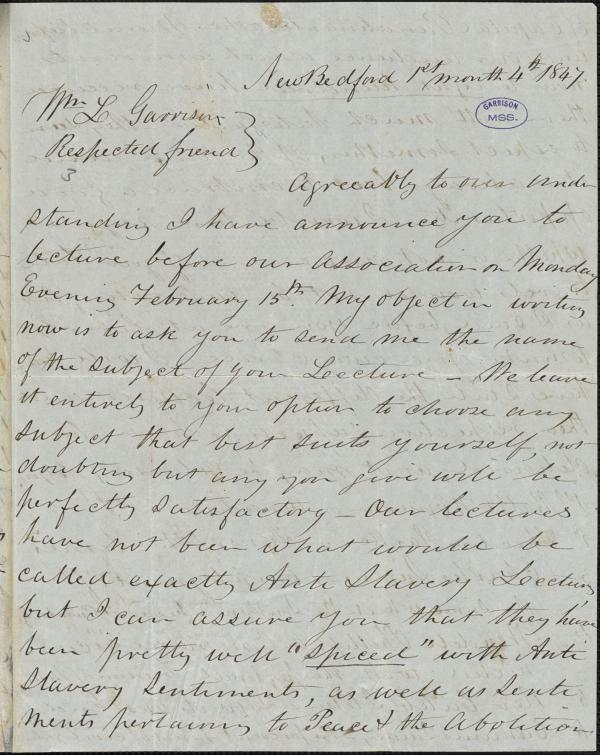 New Bedford 1st month 4th 1847.
GARRISON
MSS.
Wm L Garrison
Respected friend
3
Agreeably to our under
standing I have announce you to
lecture before our association on Monday
Evening February 15th My object in writing
now is to ask you to send me the name
of the subject of your Lecture – We leave
it entirely to your option to choose any
subject that best suits yourself, not
doubting but any you give will be
perfectly satisfactory – Our lectures
have not been what would be
called exactly Anti Slavery Lectures,
but I can assure you that they have
been pretty well "spiced" with Anti
Slavery Sentiments, as well as Senti
ments pertaining to Peace & the Abolition